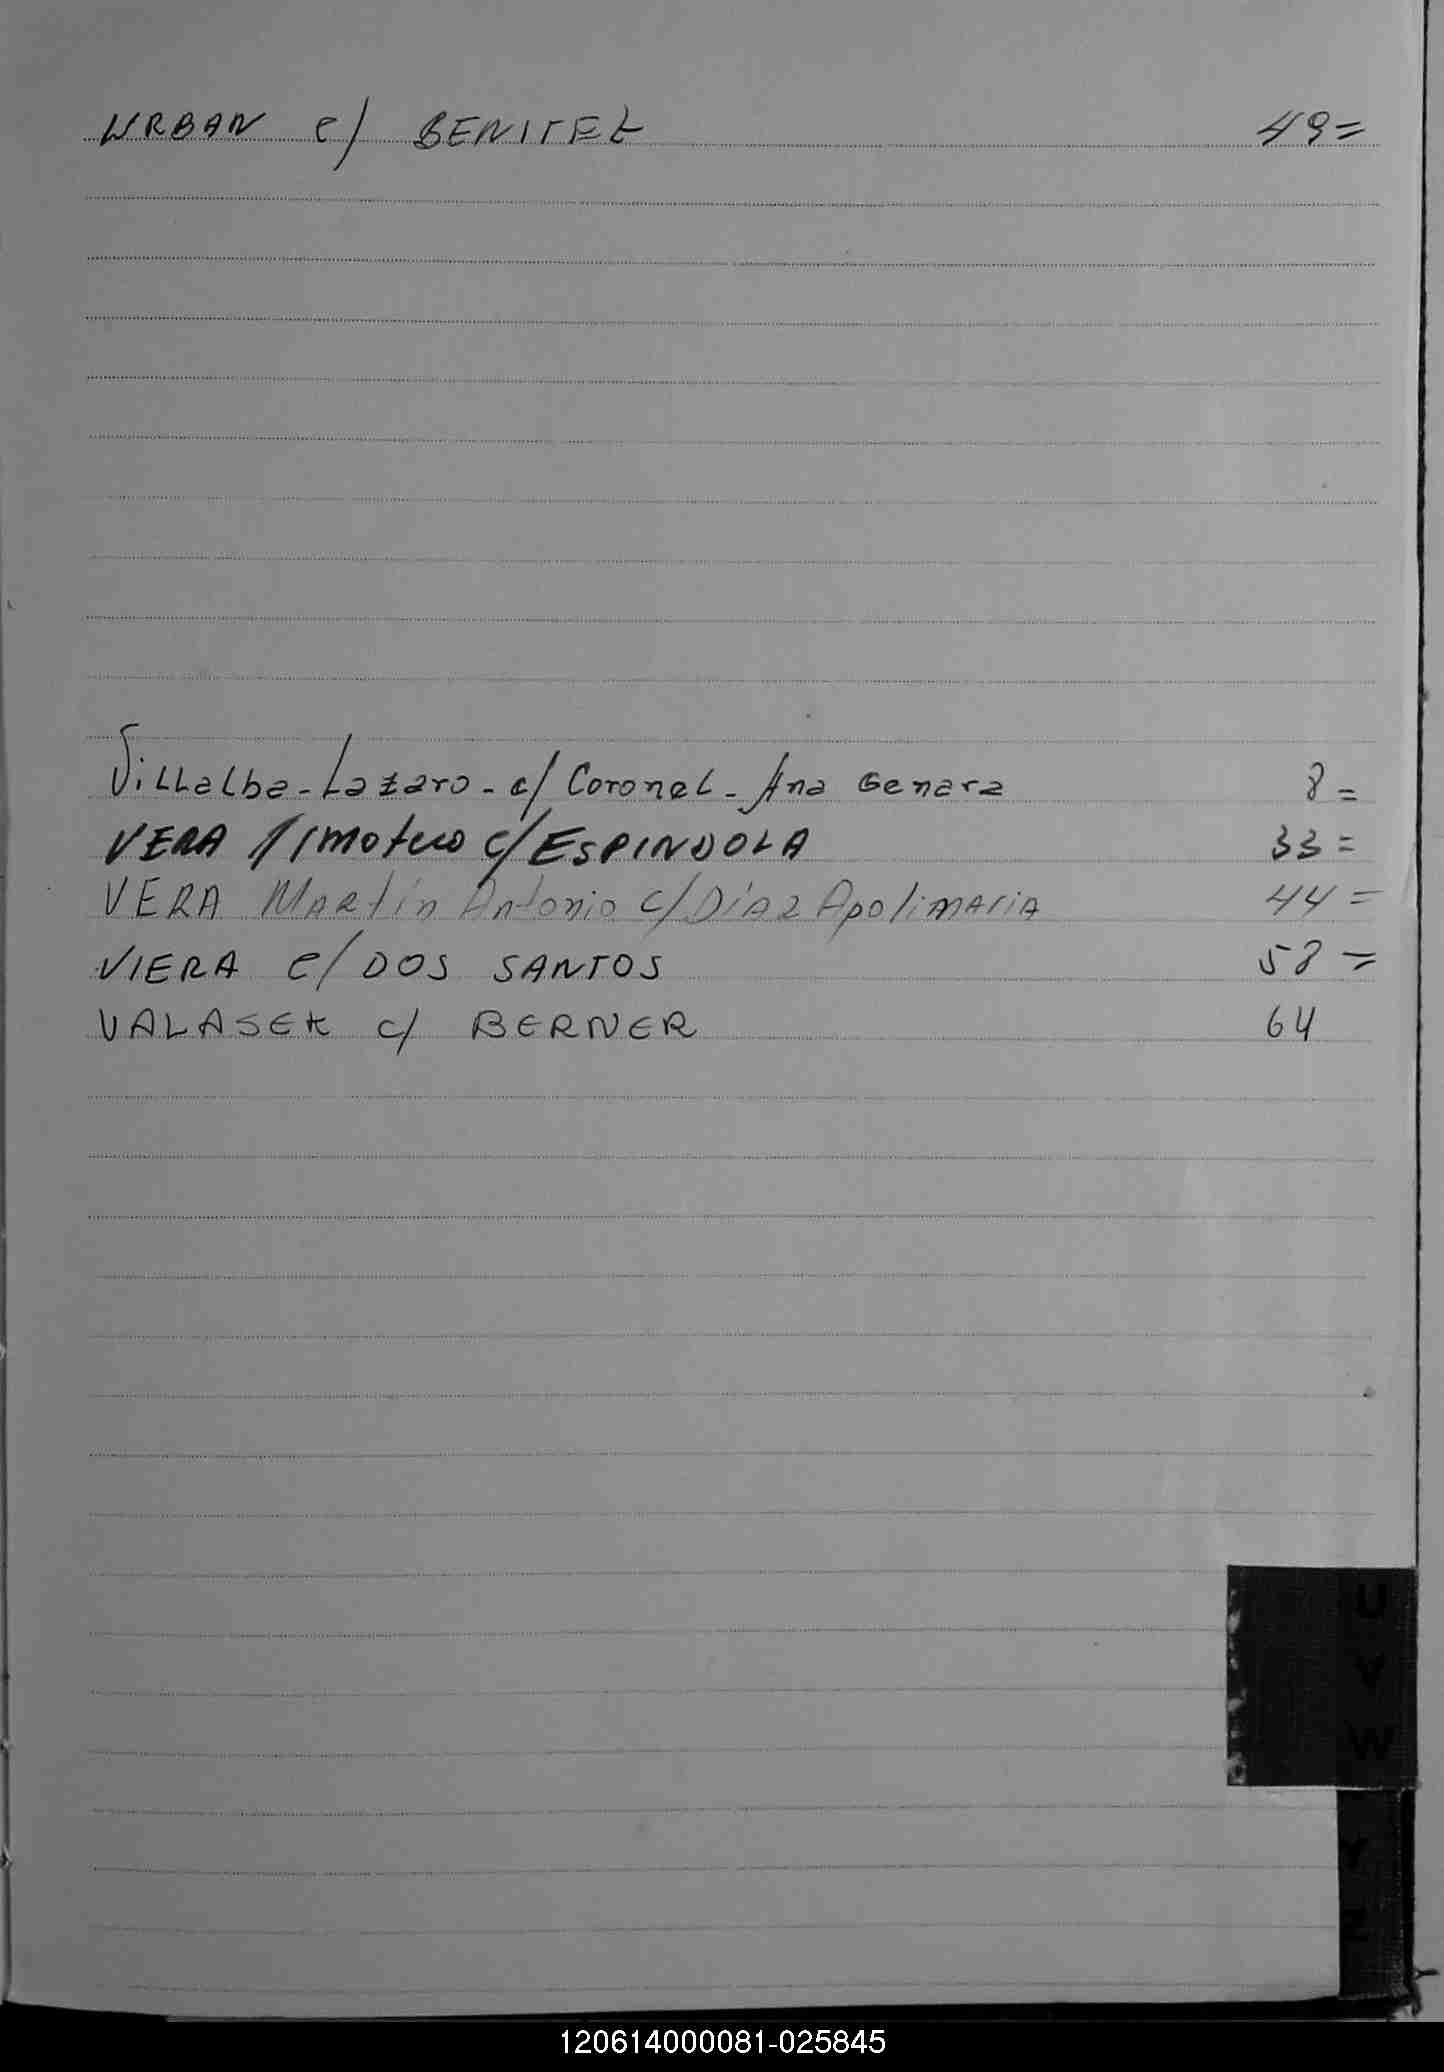 URBAN c/ BENITEZ 49=
Villalba-Lazaro-c/ Coronel-Ana Genara 8=
VERA Timoteo c/ ESPINDOLA 33=
VERA Martín Antonio c/ Díaz Apolimaria 44=
VIERA c/ DOS SANTOS 58=
VALASEK c/ BERNER 64
U
V
W
Y
Z
120614000081-025845